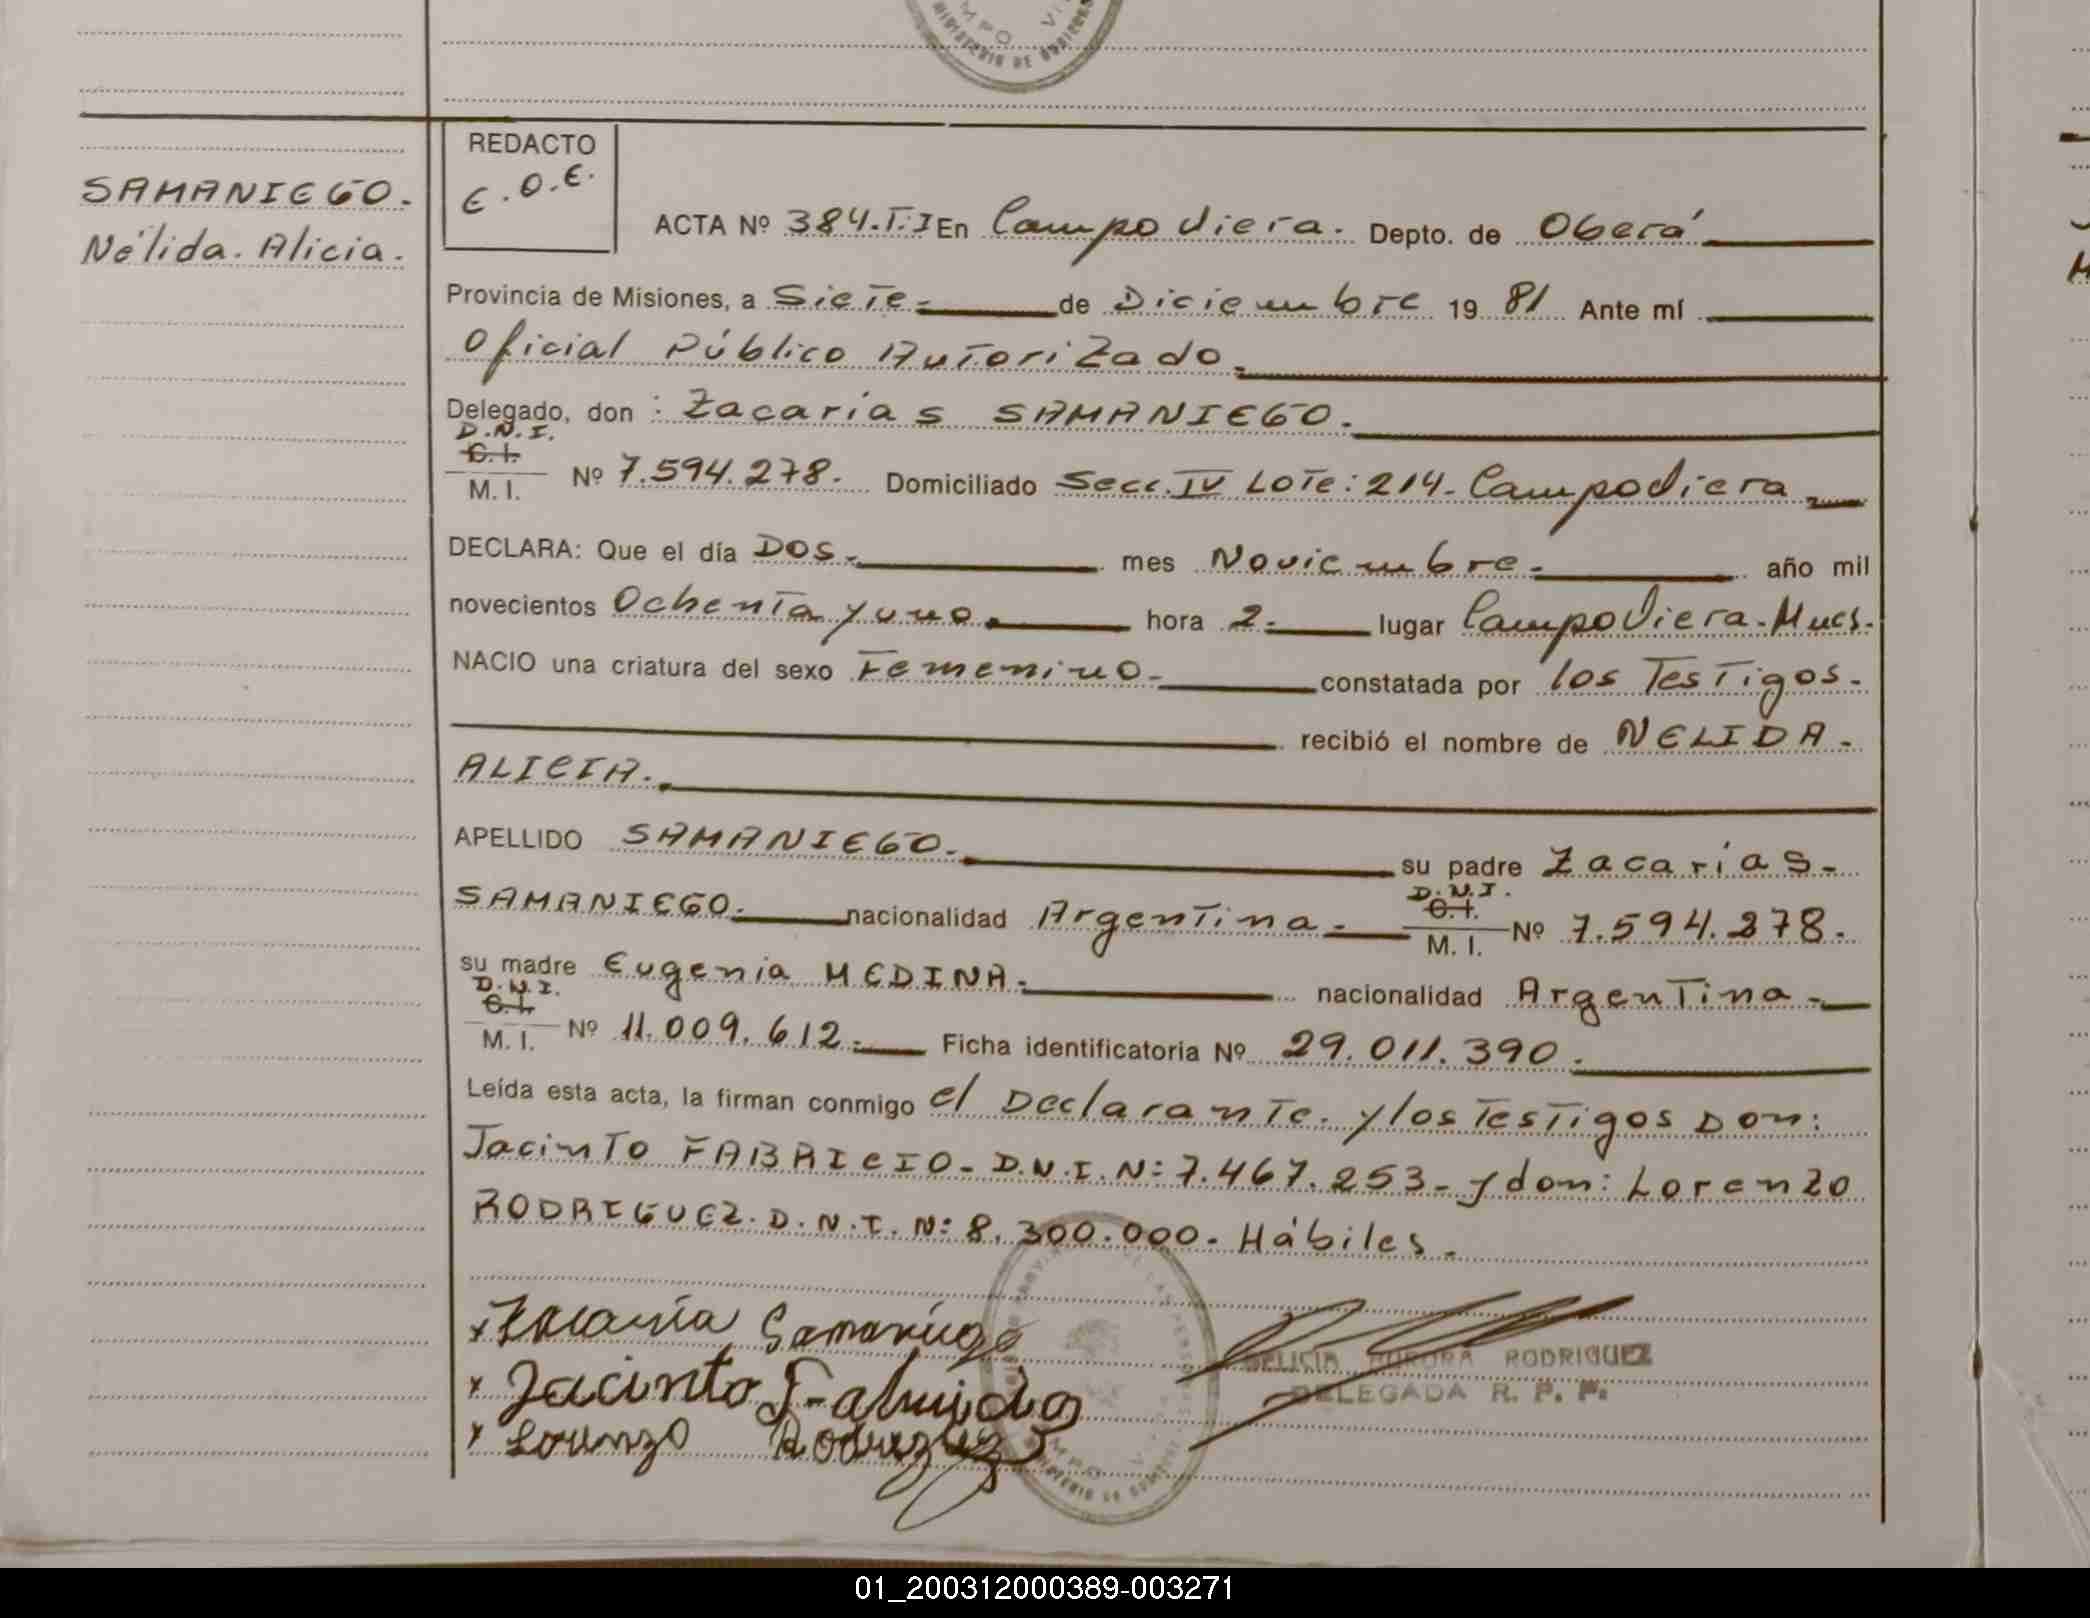 MPO VI
MINISTERIO DE GOBIERNO
SAMANIEGO.
Nélida. Alicia.
REDACTO
E.O.E.
ACTA Nº 384.T:I En Campo Viera. Depto. de Oberá
Provincia de Misiones, a Siete de Diciembre 19 81 Ante mí
Oficial Público Autorizado
Delegado, don : Zacarías SAMANIEGO.
D.N.I.
C.I.
M.I. Nº 7.594.278. Domiciliado Secc. IV Lote: 214- Campo Viera
DECLARA: Que el día Dos mes Noviembre. año mil
novecientos Ochenta y uno hora 2. lugar Campo Viera. Mnes.
NACIO una criatura del sexo Femenino constatada por los Testigos.
recibió el nombre de NELIDA.
ALICIA.
APELLIDO SAMANIEGO. su padre Zacarías.
SAMANIEGO. nacionalidad Argentina
D.N.I.
C.I.
M.I. Nº 7.594.278.
su madre Eugenia MEDINA. nacionalidad Argentina
D.N.I.
C.I.
M.I. Nº 11.009.612. Ficha identificatoria Nº 29.011.390.
Leída esta acta, la firman conmigo el Declarante. y los Testigos Don:
Jacinto FABRICIO- D.N.I. N: 7.467.253- y don: Lorenzo
RODRIGUEZ. D.N.I. N: 8.300.000. Hábiles.
x Zacaria Samaniego
x Jacinto
x Lorenzo Rodriguez
DELICIA AURORA RODRIGUEZ
DELEGADA R. P. P.
01_200312000389-003271